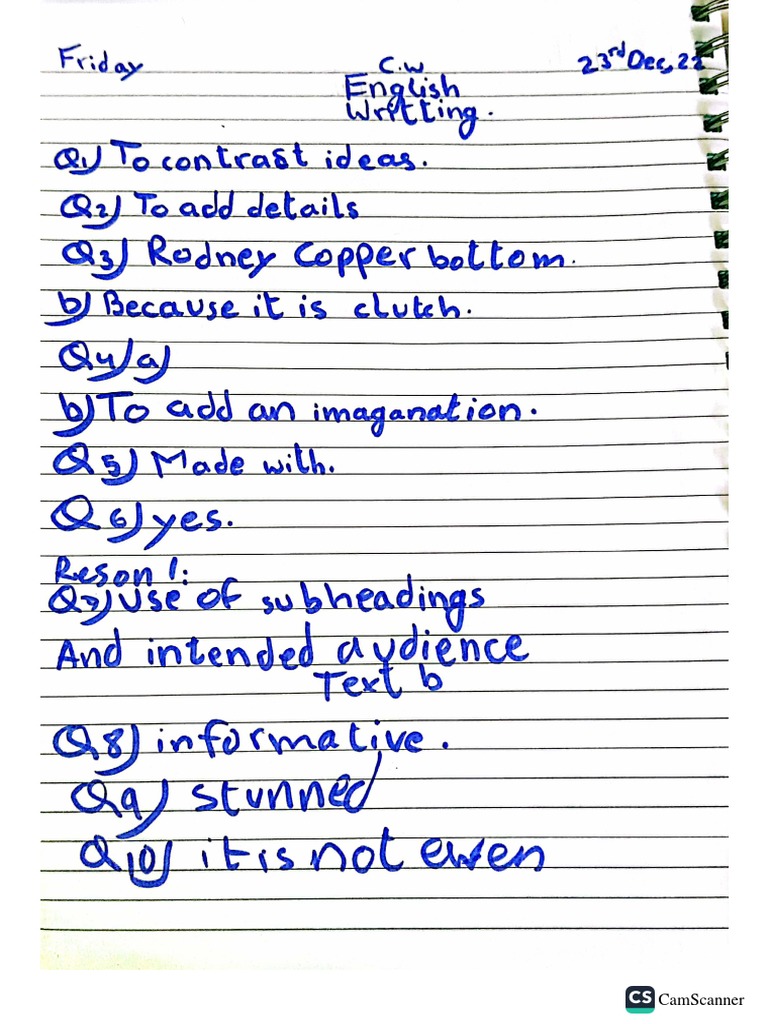 Friday C.w 23rd Dec, 22
English
Writting.
Q1) To contrast ideas.
Q2) To add details
Q3) Rodney Copper bottom.
b) Because it is clutch.
Q4) a)
b) To add an imaganation.
Q5) Made with.
Q6) yes.
Reson 1:
Q7) Use of subheadings
And intended audience
Text b
Q8) informative.
Q9) stunned
Q10) it is not ewen
CS CamScanner